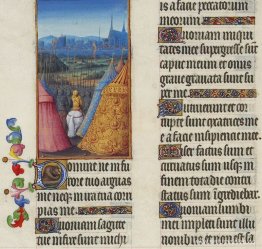 Domine ne in fu
rore tuo arguas
me neq in ira tua corri
pias me.
Quoniam sagitte
tue infixe sunt michi
is a facie peccatorum
meorum.
Quoniam iniqui
tates mee supergresse sūt
caput meum et onus
grave gravata sunt su
per me.
Putruerunt et cor
rupte sunt cicatrices me
e a facie insipiencie mee.
Miser factus sum et
curvatus sum usq in
finem tota die contri
status sum ingrediebar.
Quoniam lumbi
mei impleti sunt illusi
onibus et non est sa